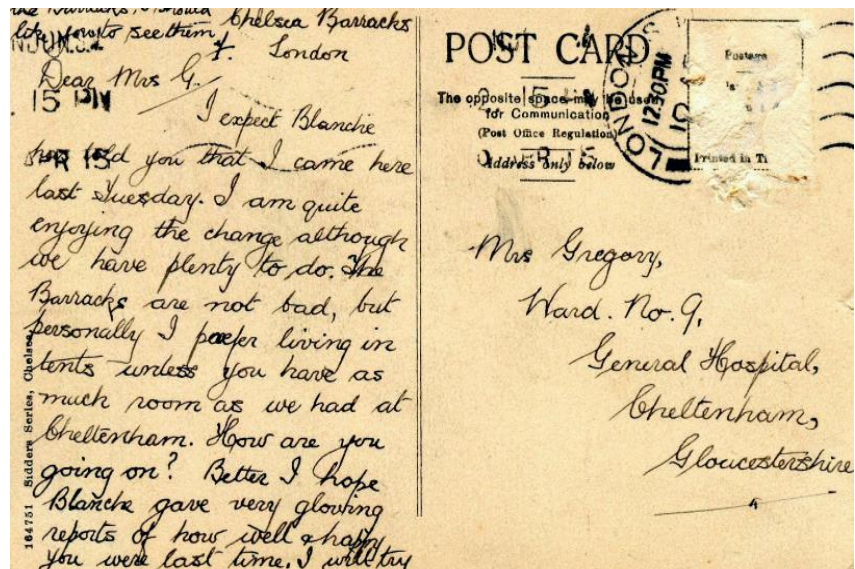 the Barracks, I should
like you to see them
Chelsea Barracks
London
Dear Mrs G.
I expect Blanche
has told you that I came here
last Tuesday. I am quite
enjoying the change although
we have plenty to do. The
Barracks are not bad, but
personally I prefer living in
tents unless you have as
much room as we had at
Cheltenham. How are you
going on? Better I hope
Blanche gave very glowing
reports of how well & happy
you were last time. I will try
15 PM
164751 Sidders Series, Chelsea
POST CARD
The opposite space may be used
for Communication
(Post Office Regulation)
Address only below
APR 15
LONDON
12.30PM
Postage
Printed in
Mrs Gregory,
Ward. No. 9,
General Hospital,
Cheltenham,
Gloucestershire